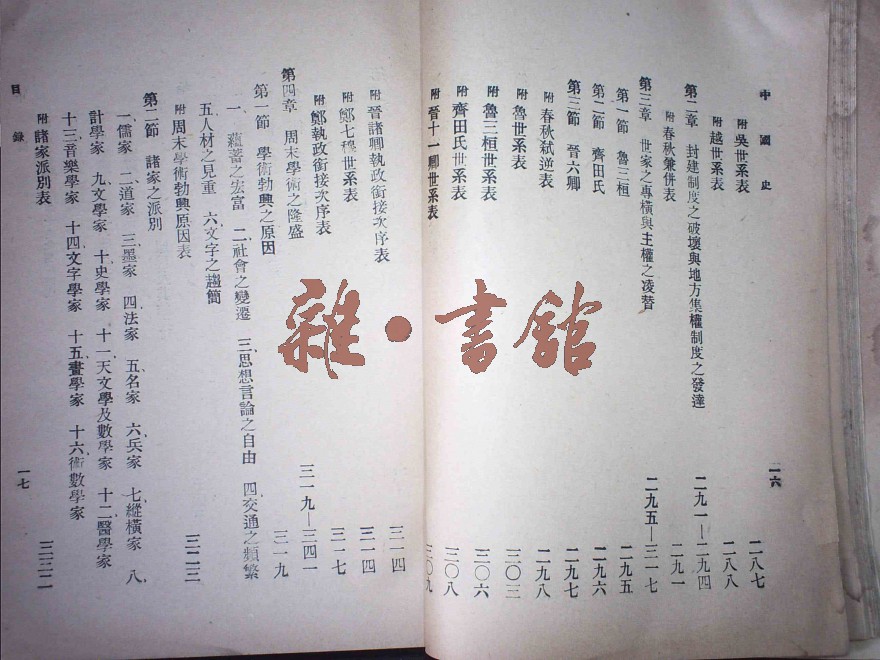 中國史
一六
附 吳世系表 二八七
附 越世系表 二八八
第二章 封建制度之破壞與地方集權制度之發達 二九一—二九四
附 春秋兼併表 二九一
第三章 世家之專橫與主權之凌替 二九五—三一七
第一節 魯三桓 二九五
第二節 齊田氏 二九六
第三節 晉六卿 二九七
附 春秋弒逆表 二九八
附 魯世系表 三〇三
附 魯三桓世系表 三〇六
附 齊田氏世系表 三〇八
附 晉十一卿世系表 三〇九
附 晉諸卿執政銜接次序表 三一四
附 鄭七穆世系表 三一四
附 鄭執政銜接次序表 三一七
第四章 周末學術之隆盛 三一九—三四一
第一節 學術勃興之原因 三一九
一、蘊蓄之宏富 二、社會之變遷 三、思想言論之自由 四、交通之頻繁
五、人材之見重 六、文字之趨簡
附 周末學術勃興原因表 三二三
第二節 諸家之派別
一、儒家 二、道家 三、墨家 四、法家 五、名家 六、兵家 七、縱橫家 八、
計學家 九、文學家 十、史學家 十一、天文學及數學家 十二、醫學家
十三、音樂學家 十四、文字學家 十五、畫學家 十六、術數學家
附 諸家派別表 三三二
目錄
一七
雜·書館